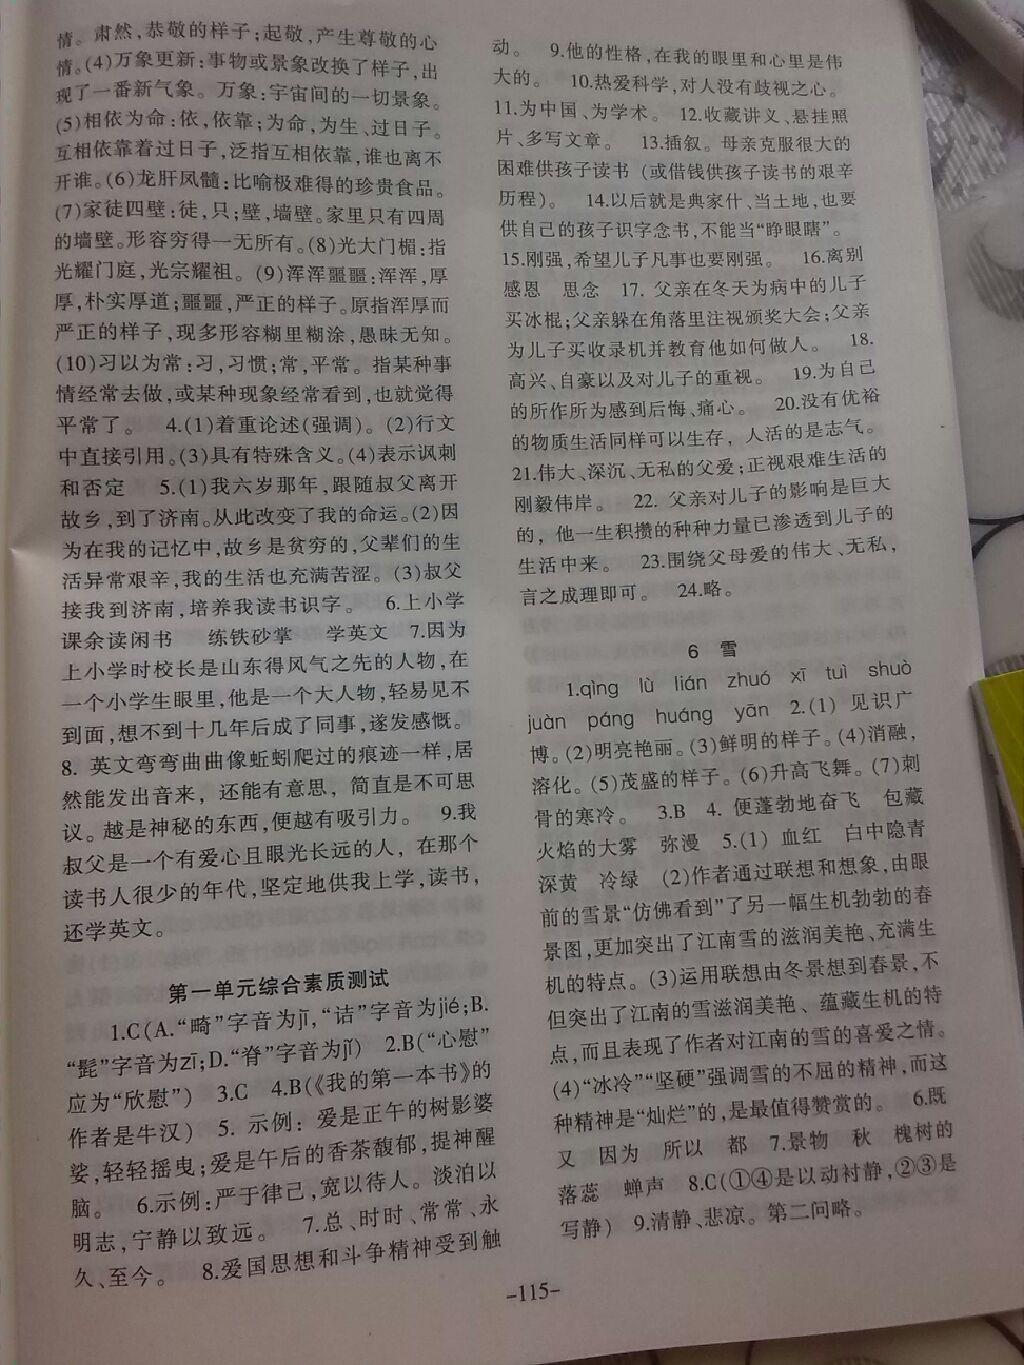 情。肃然,恭敬的样子;起敬,产生尊敬的心
情。(4)万象更新:事物或景象改换了样子,出
现了一番新气象。万象:宇宙间的一切景象。
(5)相依为命:依,依靠;为命,为生、过日子。
互相依靠着过日子,泛指互相依靠,谁也离不
开谁。(6)龙肝凤髓:比喻极难得的珍贵食品。
(7)家徒四壁:徒,只;壁,墙壁。家里只有四周
的墙壁。形容穷得一无所有。(8)光大门楣:指
光耀门庭,光宗耀祖。(9)浑浑噩噩:浑浑,厚
厚,朴实厚道;噩噩,严正的样子。原指浑厚而
严正的样子,现多形容糊里糊涂,愚昧无知。
(10)习以为常:习,习惯;常,平常。指某种事
情经常去做,或某种现象经常看到,也就觉得
平常了。 4.(1)着重论述(强调)。(2)行文
中直接引用。(3)具有特殊含义。(4)表示讽刺
和否定 5.(1)我六岁那年,跟随叔父离开
故乡,到了济南。从此改变了我的命运。(2)因
为在我的记忆中,故乡是贫穷的,父辈们的生
活异常艰辛,我的生活也充满苦涩。(3)叔父
接我到济南,培养我读书识字。 6.上小学
课余读闲书 练铁砂掌 学英文 7.因为
上小学时校长是山东得风气之先的人物,在
一个小学生眼里,他是一个大人物,轻易见不
到面,想不到十几年后成了同事,遂发感慨。
8. 英文弯弯曲曲像蚯蚓爬过的痕迹一样,居
然能发出音来,还能有意思,简直是不可思
议。越是神秘的东西,便越有吸引力。 9.我
叔父是一个有爱心且眼光长远的人,在那个
读书人很少的年代,坚定地供我上学,读书,
还学英文。
第一单元综合素质测试
1.C(A.“畸”字音为jī,“诘”字音为jié;B.
“髭”字音为zī;D.“脊”字音为jǐ) 2.B(“心慰”
应为“欣慰”) 3.C 4.B(《我的第一本书》的
作者是牛汉) 5. 示例:爱是正午的树影婆
娑,轻轻摇曳;爱是午后的香茶馥郁,提神醒
脑。 6.示例:严于律己,宽以待人。淡泊以
明志,宁静以致远。 7.总、时时、常常、永
久、至今。 8.爱国思想和斗争精神受到触
动。 9.他的性格,在我的眼里和心里是伟
大的。 10.热爱科学,对人没有歧视之心。
11.为中国、为学术。 12.收藏讲义、悬挂照
片、多写文章。 13.插叙。母亲克服很大的
困难供孩子读书(或借钱供孩子读书的艰辛
历程)。 14.以后就是典家什、当土地,也要
供自己的孩子识字念书,不能当“睁眼瞎”。
15.刚强,希望儿子凡事也要刚强。 16.离别
感恩 思念 17. 父亲在冬天为病中的儿子
买冰棍;父亲躲在角落里注视颁奖大会;父亲
为儿子买收录机并教育他如何做人。 18.
高兴、自豪以及对儿子的重视。 19.为自己
的所作所为感到后悔、痛心。 20.没有优裕
的物质生活同样可以生存,人活的是志气。
21.伟大、深沉、无私的父爱;正视艰难生活的
刚毅伟岸。 22. 父亲对儿子的影响是巨大
的,他一生积攒的种种力量已渗透到儿子的
生活中来。 23.围绕父母爱的伟大、无私,
言之成理即可。 24.略。
6 雪
1.qìng lù lián zhuó xī tuì shuò
juàn páng huáng yān 2.(1) 见识广
博。(2)明亮艳丽。(3)鲜明的样子。(4)消融,
溶化。(5)茂盛的样子。(6)升高飞舞。(7)刺
骨的寒冷。 3.B 4. 便蓬勃地奋飞 包藏
火焰的大雾 弥漫 5.(1) 血红 白中隐青
深黄 冷绿 (2)作者通过联想和想象,由眼
前的雪景“仿佛看到”了另一幅生机勃勃的春
景图,更加突出了江南雪的滋润美艳、充满生
机的特点。(3)运用联想由冬景想到春景,不
但突出了江南的雪滋润美艳、蕴藏生机的特
点,而且表现了作者对江南的雪的喜爱之情。
(4)“冰冷”“坚硬”强调雪的不屈的精神,而这
种精神是“灿烂”的,是最值得赞赏的。 6.既
又 因为 所以 都 7.景物 秋 槐树的
落蕊 蝉声 8.C(①④是以动衬静,②③是
写静) 9.清静、悲凉。第二问略。
-115-